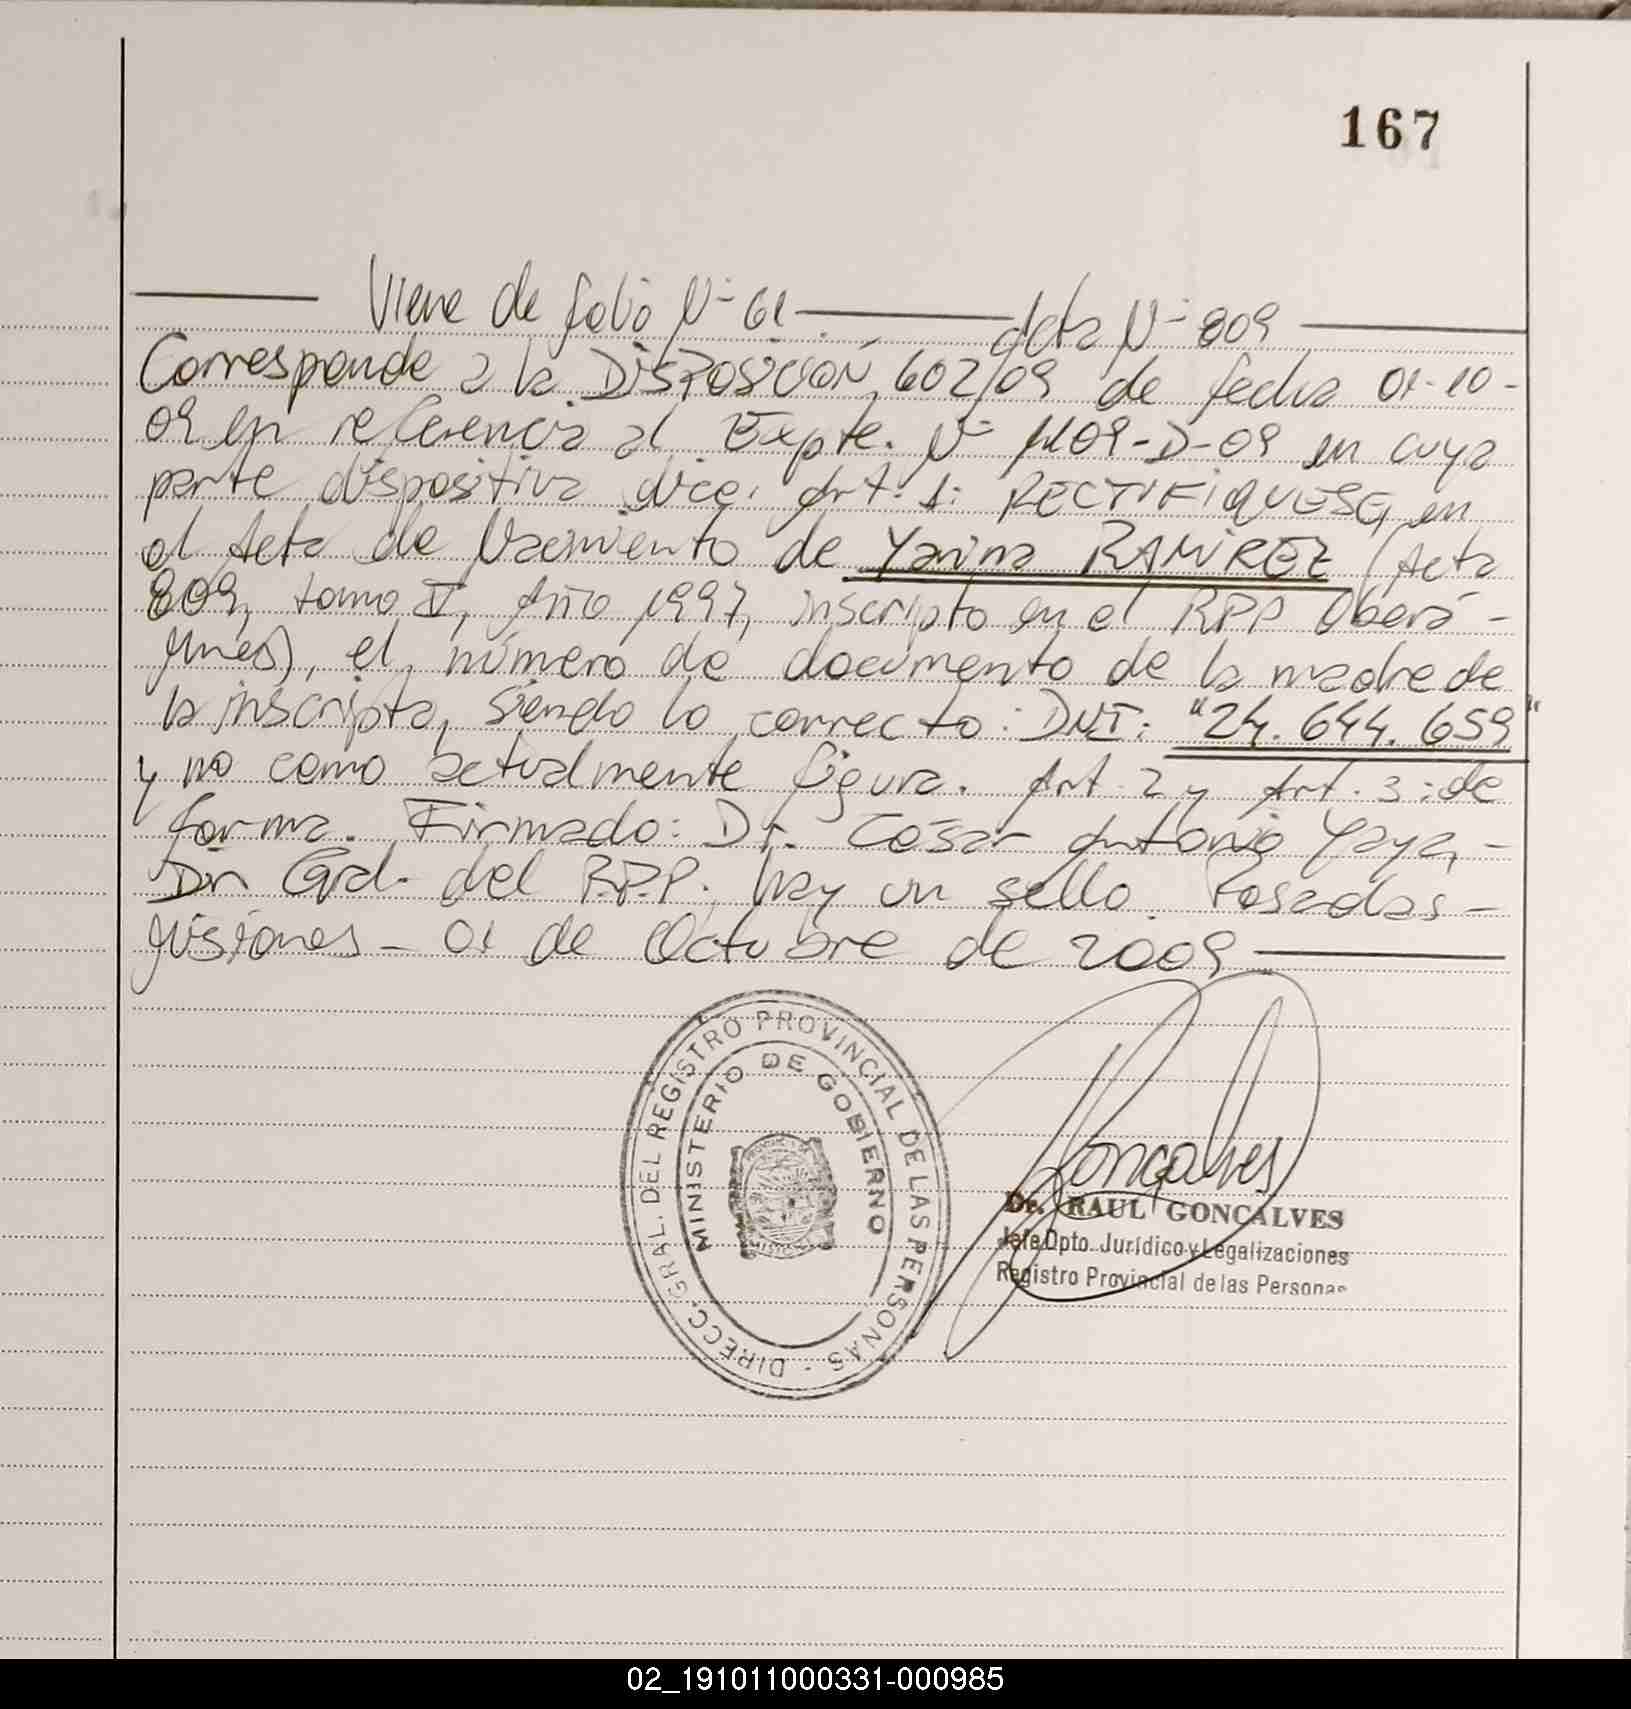 167
Viene de folio Nº 61 Acta Nº 809
Corresponde a la DISPOSICION 602/09 de fecha 01-10-
09 en referencia al Expte. Nº 1409-D-09 en cuya
parte dispositiva dice: Art. 1: RECTIFIQUESE, en
el Acta de Nacimiento de Yanina RAMIREZ (Acta
809, tomo V, Año 1997, inscripto en el RPP Oberá -
Mnes), el número de documento de la madre de
la inscripta, siendo lo correcto: DNI: "24.644.659"
y no como actualmente figura. Art. 2 y Art. 3: de
forma. Firmado: Dr. César Antonio Yaya, -
Dir Gral. del R.P.P. hay un sello. Posadas -
Misiones - 01 de Octubre de 2009
DIRECC. GRAL. DEL REGISTRO PROVINCIAL DE LAS PERSONAS -
MINISTERIO DE GOBIERNO
Goncalves
Dr. RAUL GONCALVES
Jefe Dpto. Jurídico y Legalizaciones
Registro Provincial de las Personas
02_191011000331-000985